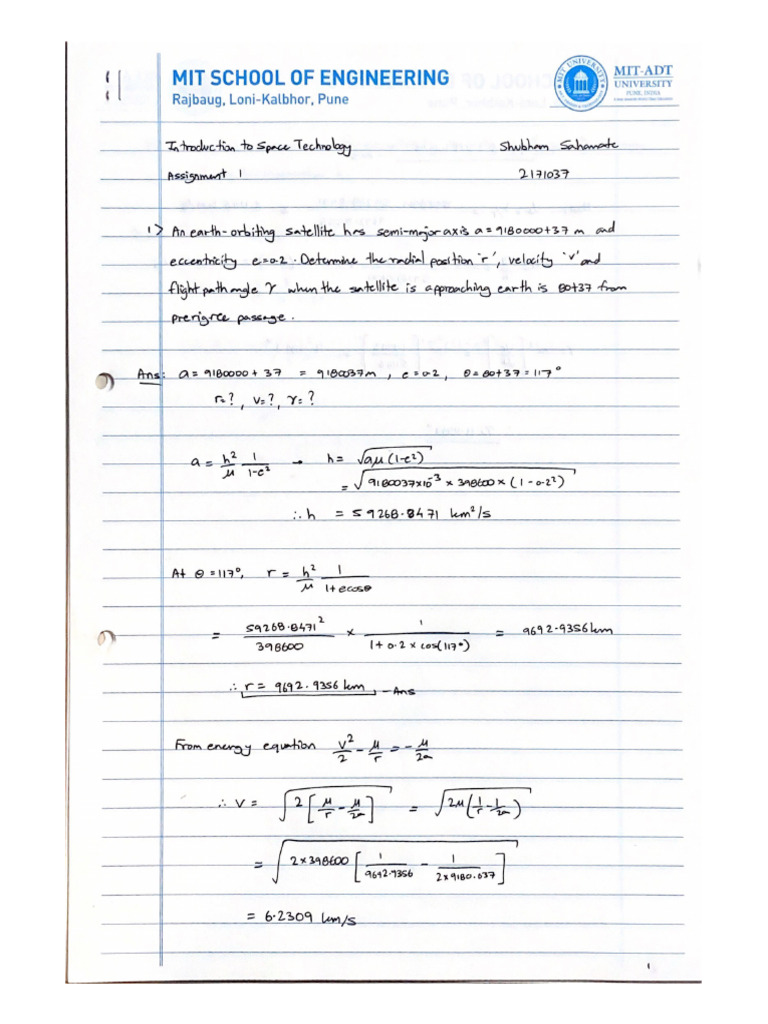 MIT SCHOOL OF ENGINEERING
Rajbaug, Loni-Kalbhor, Pune
MIT-ADT
UNIVERSITY
PUNE, INDIA
Introduction to Space Technology Shubham Sahamate
Assignment 1 2171037
1> An earth-orbiting satellite has semi-major axis a = 9180000+37 m and
eccentricity e=0.2. Determine the radial position 'r', velocity 'v' and
flight path angle γ when the satellite is approaching earth is 80+37 from
prerigree passage.
Ans: a = 9180000 + 37 = 9180037m, e = 0.2, θ = 80+37 = 117°
r=?, v=?, γ=?
a = h²/μ 1/1-e² → h = √aμ(1-e²)
= √9180037×10⁻³ × 398600 × (1-0.2²)
∴ h = 59268.8471 km²/s
At θ = 117°, r = h²/μ 1/1+ecosθ
= 59268.8471²/398600 × 1/1+0.2×cos(117°) = 9692.9356 km
∴ r = 9692.9356 km - Ans
From energy equation v²/2 - μ/r = -μ/2a
∴ v = √2[μ/r - μ/2a] = √2μ(1/r - 1/2a)
= √2×398600[1/9692.9356 - 1/2×9180.037]
= 6.2309 km/s
1